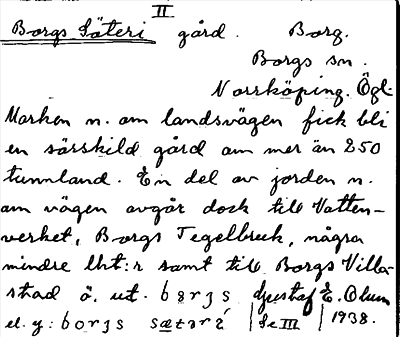 II
Borgs Säteri gård. Borg.
Borgs sn.
Norrköping. Ögl.
Marken n. om landsvägen fick bli
en särskild gård om mer än 250
tunnland. En del av jorden n.
om vägen avgår dock till Vatten-
verket, Borgs Tegelbruk, några
mindre lht:r samt till Borgs Villa-
stad ö. ut. bǫrjs Gustaf E. Olum
el. y: borjs sætərí Se III 1938.